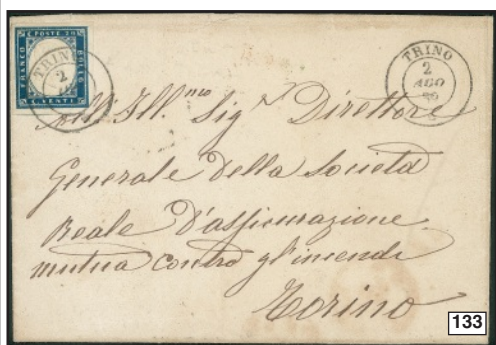 C. POSTE 20
FRANCO
BOLLO
C. VENTI
TRINO
2
TRINO
2
AGO
All'Ill.mo Sig.r Direttore
Generale della Società
Reale d'assicurazione
mutua contro gl'incendi
Torino
133